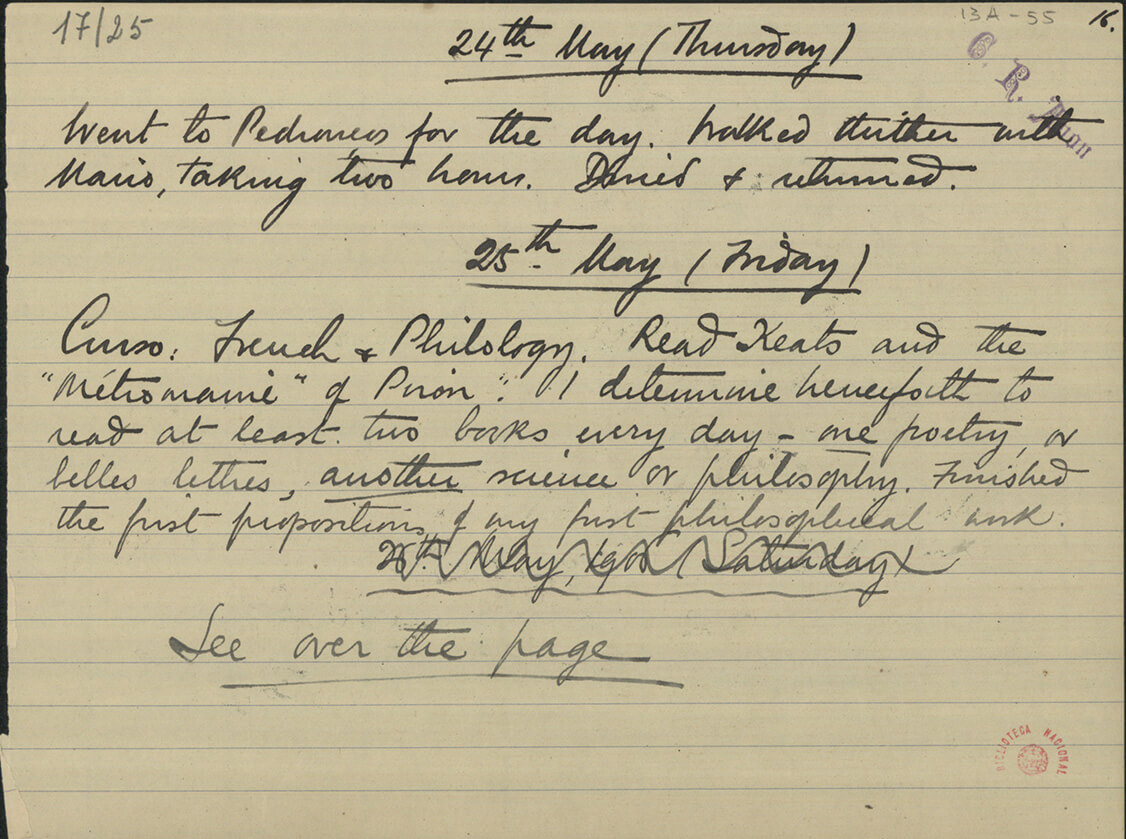 17/25
13A-55
16.
C. R. Anon
24th May (Thursday)
Went to Pedrouços for the day. Walked thither with
Mario, taking two hours. Dined & returned.
25th May (Friday)
Curso: French & Philology. Read Keats and the
"Métromanie" of Piron". I determine henceforth to
read at least two books every day - one poetry, or
belles lettres, another science or philosophy. Finished
the first propositions of my first philosophical work.
26th May, 1906 (Saturday)
See over the page
BIBLIOTECA NACIONAL